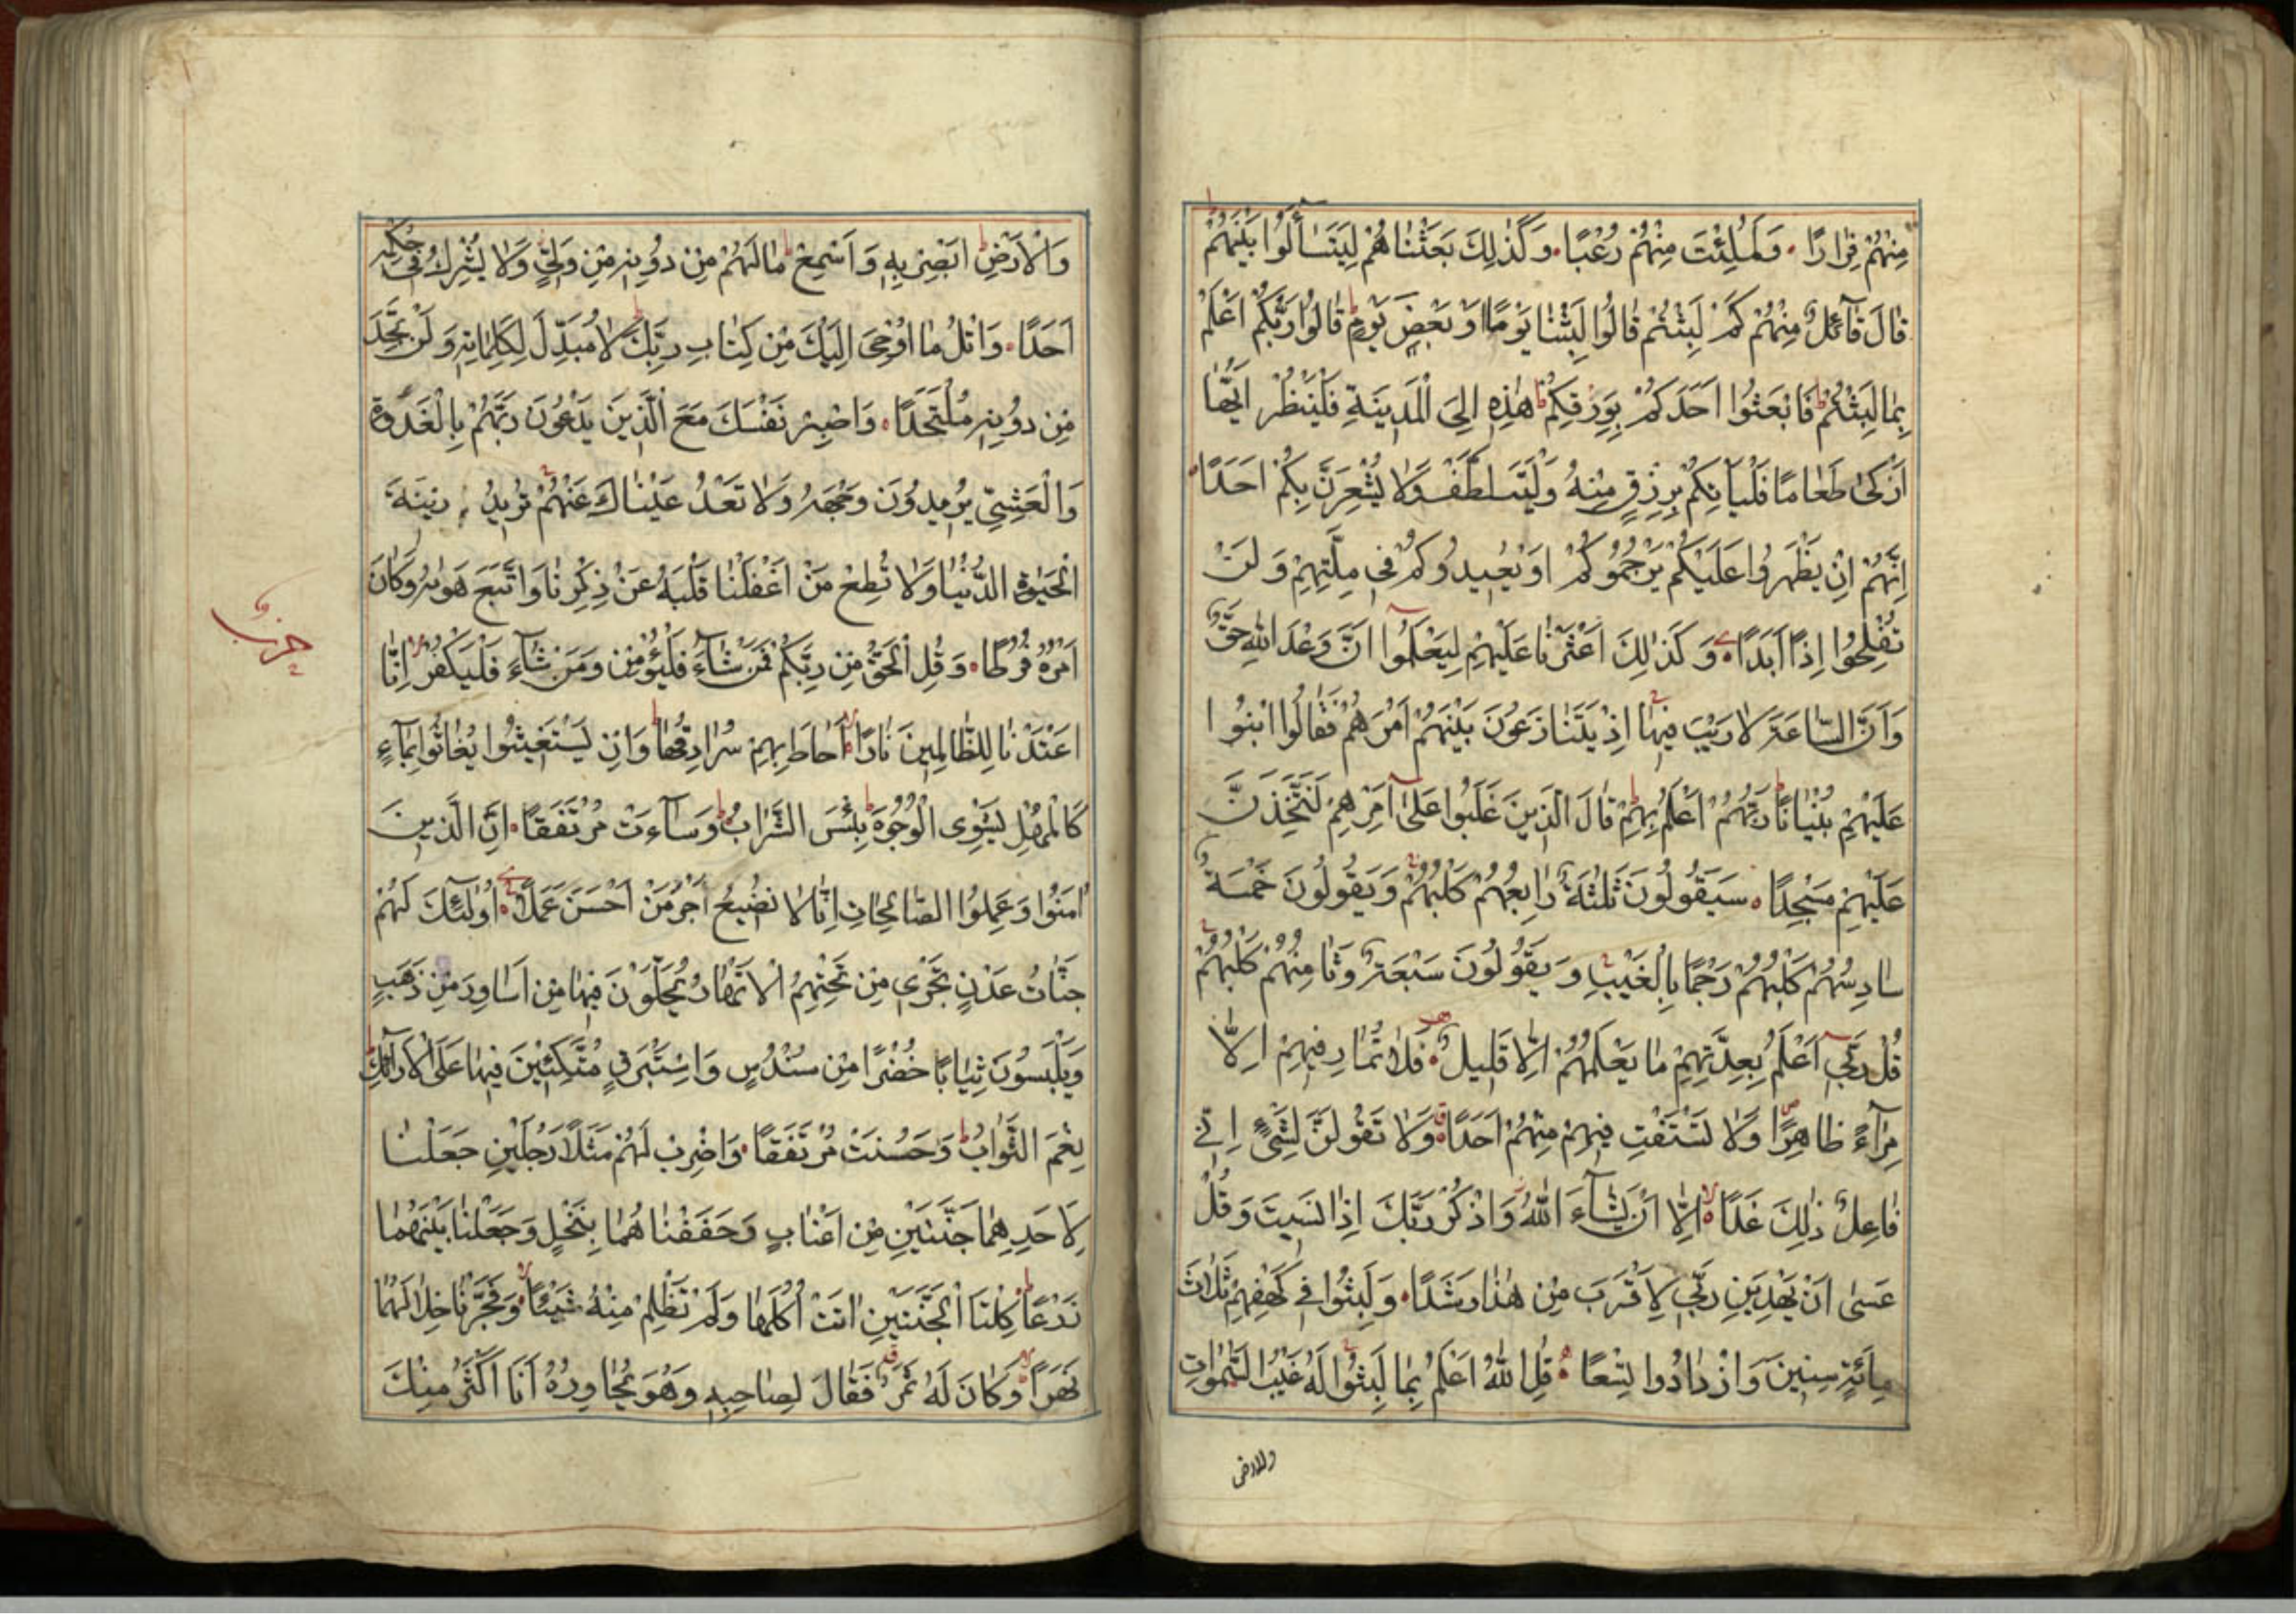 مِنْهُمْ فِرَارًا وَلَمُلِئْتَ مِنْهُمْ رُعْبًا وَكَذٰلِكَ بَعَثْنَاهُمْ لِيَتَسَآأَلُوا بَيْنَهُمْ
قَالَ قَآئِلٌ مِنْهُمْ كَمْ لَبِثْتُمْ قَالُوا لَبِثْنَا يَوْمًا اَوْ بَعْضَ يَوْمٍ قَالُوا رَبُّكُمْ اَعْلَمُ
بِمَا لَبِثْتُمْ فَابْعَثُوا اَحَدَكُمْ بِوَرِقِكُمْ هٰذِهِ اِلَى الْمَدِينَةِ فَلْيَنْظُرْ اَيُّهَا
اَزْكٰى طَعَامًا فَلْيَأْتِكُمْ بِرِزْقٍ مِنْهُ وَلْيَتَلَطَّفْ وَلَا يُشْعِرَنَّ بِكُمْ اَحَدًا
اِنَّهُمْ اِنْ يَظْهَرُوا عَلَيْكُمْ يَرْجُمُوكُمْ اَوْ يُعِيدُوكُمْ فِي مِلَّتِهِمْ وَلَنْ
تُفْلِحُوا اِذًا اَبَدًا وَكَذٰلِكَ اَعْثَرْنَا عَلَيْهِمْ لِيَعْلَمُوا اَنَّ وَعْدَ اللّٰهِ حَقٌّ
وَاَنَّ السَّاعَةَ لَا رَيْبَ فِيهَا اِذْ يَتَنَازَعُونَ بَيْنَهُمْ اَمْرَهُمْ فَقَالُوا ابْنُوا
عَلَيْهِمْ بُنْيَانًا رَبُّهُمْ اَعْلَمُ بِهِمْ قَالَ الَّذِينَ غَلَبُوا عَلٰى اَمْرِهِمْ لَنَتَّخِذَنَّ
عَلَيْهِمْ مَسْجِدًا سَيَقُولُونَ ثَلٰثَةٌ رَابِعُهُمْ كَلْبُهُمْ وَيَقُولُونَ خَمْسَةٌ
سَادِسُهُمْ كَلْبُهُمْ رَجْمًا بِالْغَيْبِ وَيَقُولُونَ سَبْعَةٌ وَثَامِنُهُمْ كَلْبُهُمْ
قُلْ رَبِّي اَعْلَمُ بِعِدَّتِهِمْ مَا يَعْلَمُهُمْ اِلَّا قَلِيلٌ فَلَا تُمَارِ فِيهِمْ اِلَّا
مِرَآءً ظَاهِرًا وَلَا تَسْتَفْتِ فِيهِمْ مِنْهُمْ اَحَدًا وَلَا تَقُولَنَّ لِشَيْءٍ اِنِّي
فَاعِلٌ ذٰلِكَ غَدًا اِلَّا اَنْ يَشَآءَ اللّٰهُ وَاذْكُرْ رَبَّكَ اِذَا نَسِيتَ وَقُلْ
عَسٰى اَنْ يَهْدِيَنِ رَبِّي لِاَقْرَبَ مِنْ هٰذَا رَشَدًا وَلَبِثُوا فِي كَهْفِهِمْ ثَلَاثَ
مِائَةٍ سِنِينَ وَازْدَادُوا تِسْعًا قُلِ اللّٰهُ اَعْلَمُ بِمَا لَبِثُوا لَهُ غَيْبُ السَّمٰوَاتِ
والارض
وَالْاَرْضِ اَبْصِرْ بِهِ وَاَسْمِعْ مَا لَهُمْ مِنْ دُونِهِ مِنْ وَلِيٍّ وَلَا يُشْرِكُ فِي حُكْمِهِ
اَحَدًا وَاتْلُ مَا اُوحِيَ اِلَيْكَ مِنْ كِتَابِ رَبِّكَ لَا مُبَدِّلَ لِكَلِمَاتِهِ وَلَنْ تَجِدَ
مِنْ دُونِهِ مُلْتَحَدًا وَاصْبِرْ نَفْسَكَ مَعَ الَّذِينَ يَدْعُونَ رَبَّهُمْ بِالْغَدٰوةِ
وَالْعَشِيِّ يُرِيدُونَ وَجْهَهُ وَلَا تَعْدُ عَيْنَاكَ عَنْهُمْ تُرِيدُ زِينَةَ
الْحَيٰوةِ الدُّنْيَا وَلَا تُطِعْ مَنْ اَغْفَلْنَا قَلْبَهُ عَنْ ذِكْرِنَا وَاتَّبَعَ هَوٰيهُ وَكَانَ
اَمْرُهُ فُرُطًا وَقُلِ الْحَقُّ مِنْ رَبِّكُمْ فَمَنْ شَآءَ فَلْيُؤْمِنْ وَمَنْ شَآءَ فَلْيَكْفُرْ اِنَّا
حزب
اَعْتَدْنَا لِلظَّالِمِينَ نَارًا اَحَاطَ بِهِمْ سُرَادِقُهَا وَاِنْ يَسْتَغِيثُوا يُغَاثُوا بِمَآءٍ
كَالْمُهْلِ يَشْوِي الْوُجُوهَ بِئْسَ الشَّرَابُ وَسَآءَتْ مُرْتَفَقًا اِنَّ الَّذِينَ
اٰمَنُوا وَعَمِلُوا الصَّالِحَاتِ اِنَّا لَا نُضِيعُ اَجْرَ مَنْ اَحْسَنَ عَمَلًا اُولٰئِكَ لَهُمْ
جَنَّاتُ عَدْنٍ تَجْرِي مِنْ تَحْتِهِمُ الْاَنْهَارُ يُحَلَّوْنَ فِيهَا مِنْ اَسَاوِرَ مِنْ ذَهَبٍ
وَيَلْبَسُونَ ثِيَابًا خُضْرًا مِنْ سُنْدُسٍ وَاِسْتَبْرَقٍ مُتَّكِئِينَ فِيهَا عَلَى الْاَرَآئِكِ
نِعْمَ الثَّوَابُ وَحَسُنَتْ مُرْتَفَقًا وَاضْرِبْ لَهُمْ مَثَلًا رَجُلَيْنِ جَعَلْنَا
لِاَحَدِهِمَا جَنَّتَيْنِ مِنْ اَعْنَابٍ وَحَفَفْنَاهُمَا بِنَخْلٍ وَجَعَلْنَا بَيْنَهُمَا
زَرْعًا كِلْتَا الْجَنَّتَيْنِ اٰتَتْ اُكُلَهَا وَلَمْ تَظْلِمْ مِنْهُ شَيْئًا وَفَجَّرْنَا خِلَالَهُمَا
نَهَرًا وَكَانَ لَهُ ثَمَرٌ فَقَالَ لِصَاحِبِهِ وَهُوَ يُحَاوِرُهُ اَنَا اَكْثَرُ مِنْكَ